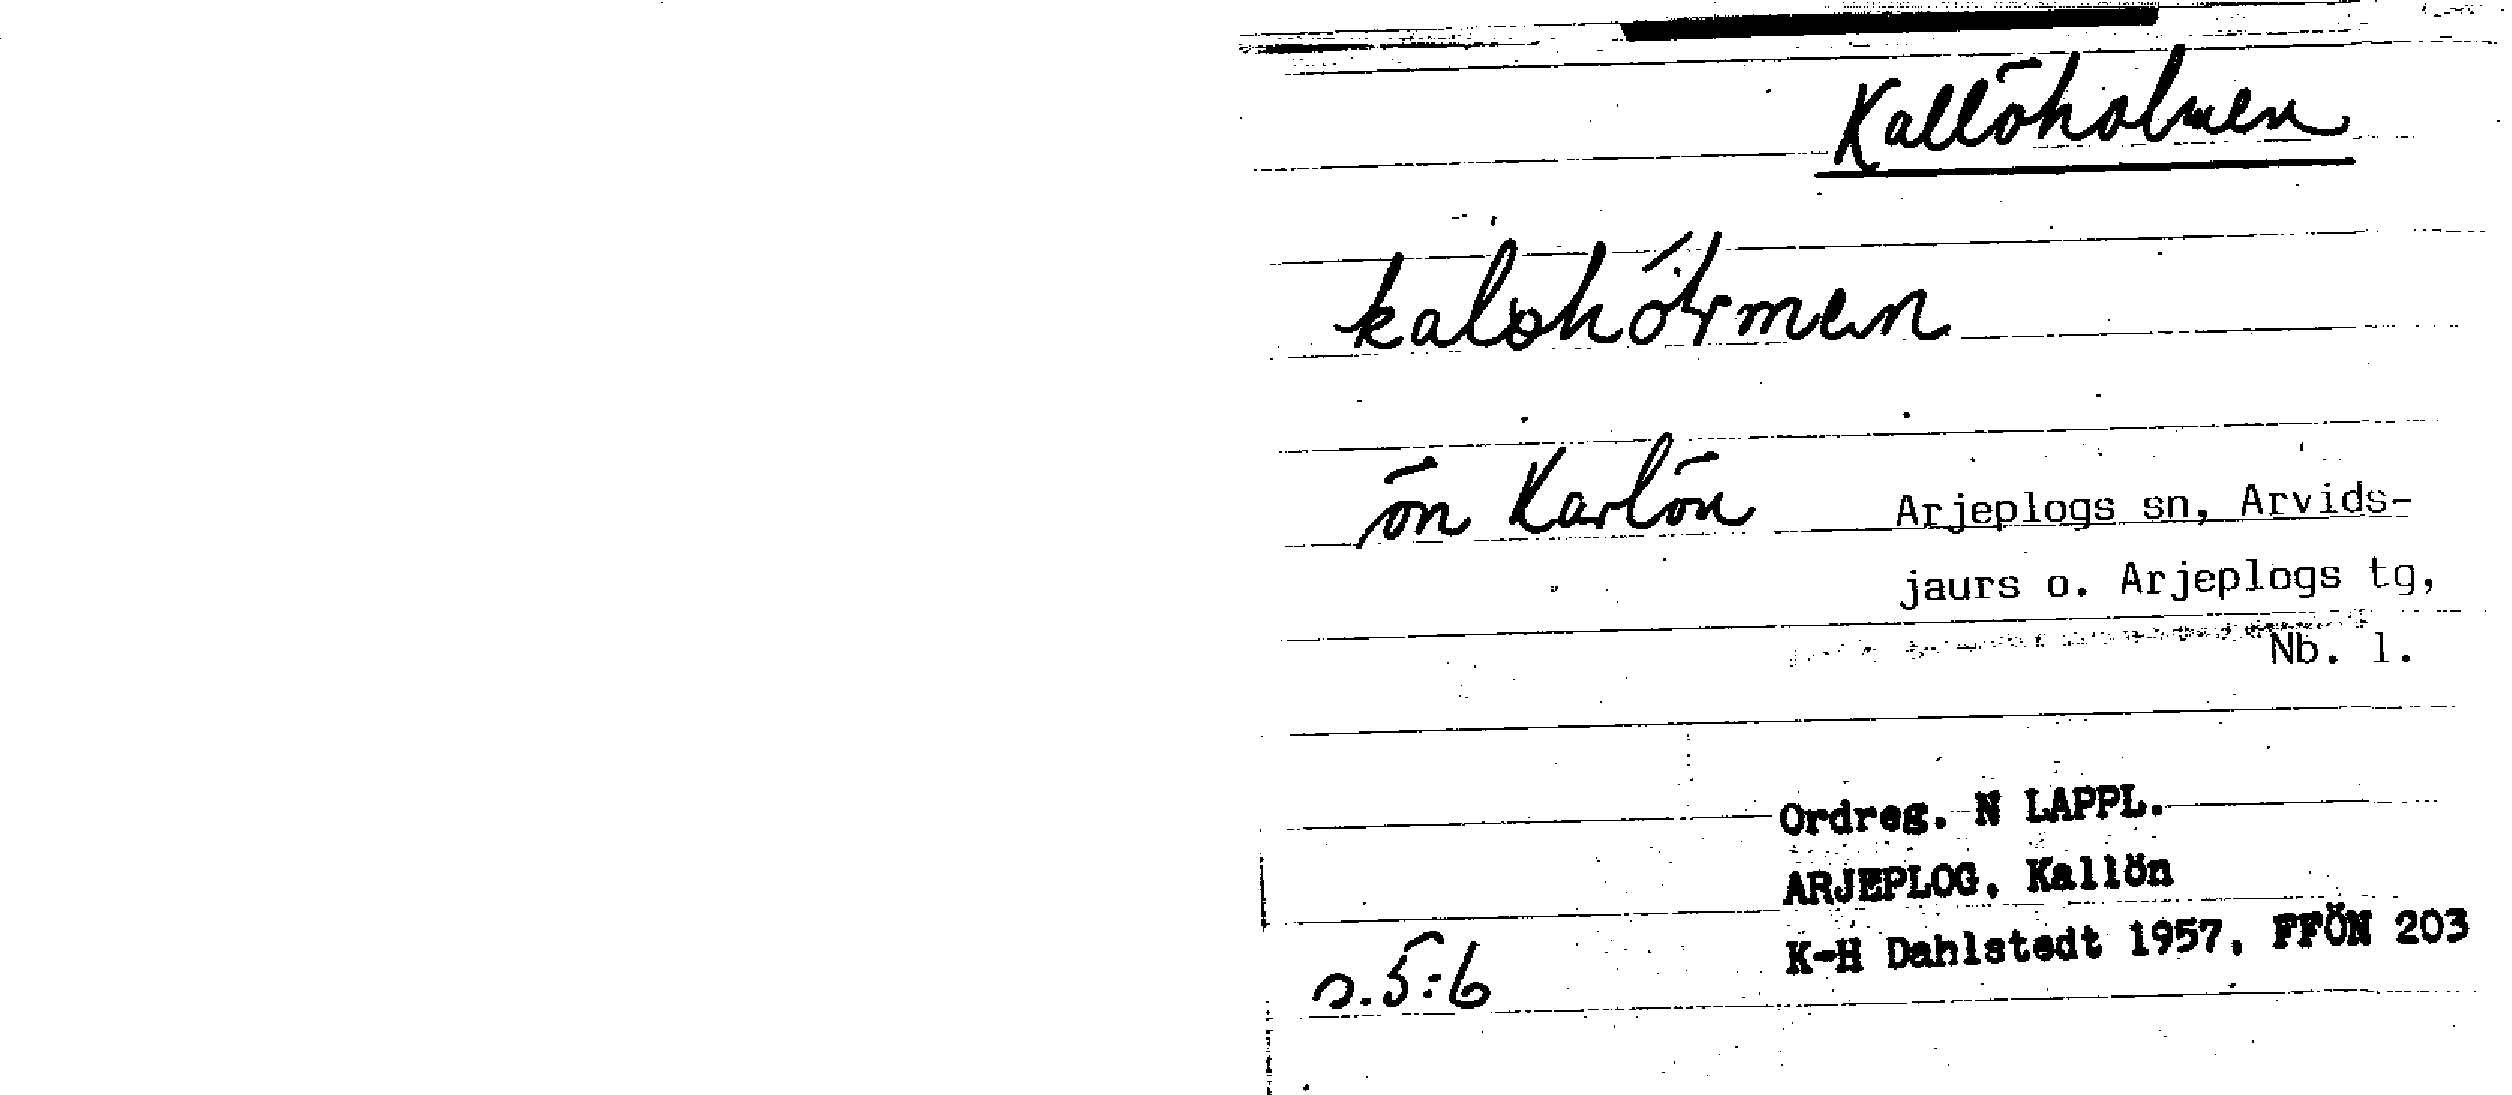 Kallöholmen
kaløhó̀lmen
ön Karlön
Arjeplogs sn, Arvids-
jaurs o. Arjeplogs tg,
Nb. l.
Ordreg. N LAPPL.
ARJEPLOG. Kallön
K-H Dahlstedt 1957. FFÖN 203
s. 5:6